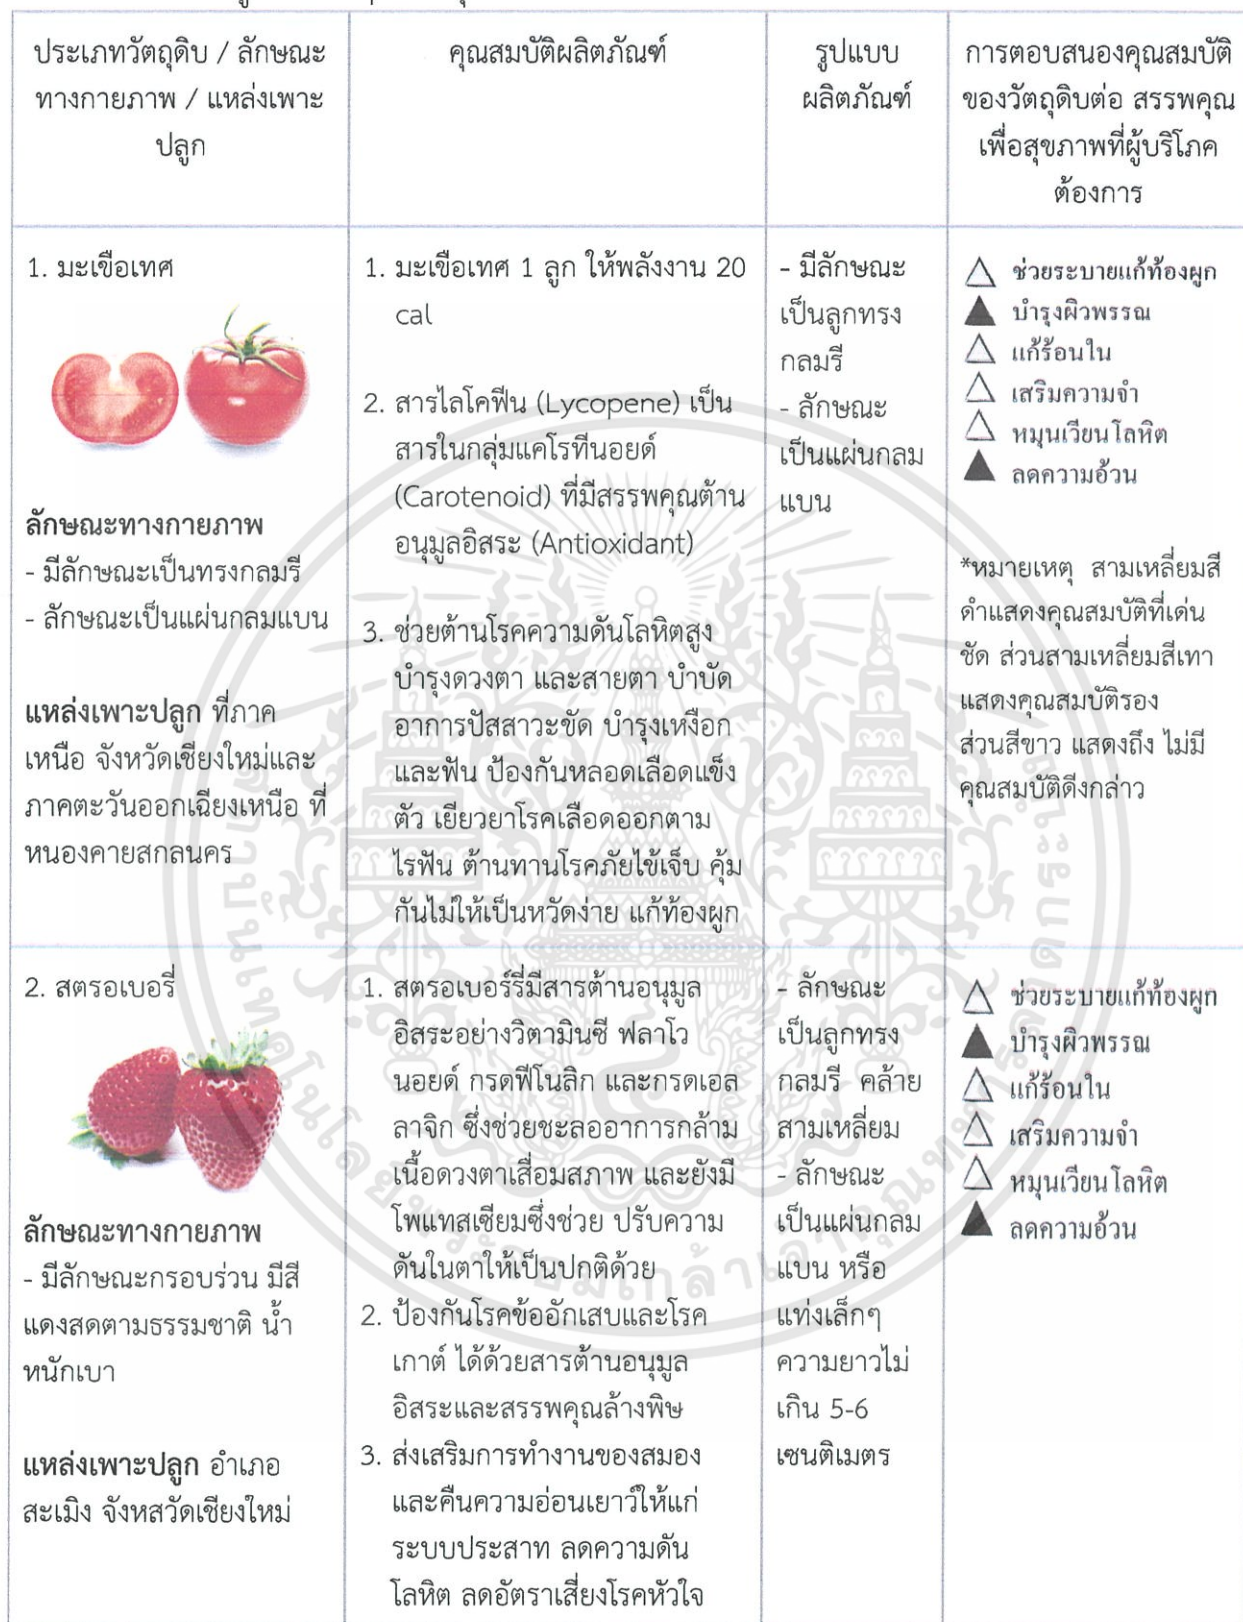 ประเภทวัตถุดิบ / ลักษณะ
ทางกายภาพ / แหล่งเพาะ
ปลูก
คุณสมบัติผลิตภัณฑ์
รูปแบบ
ผลิตภัณฑ์
การตอบสนองคุณสมบัติ
ของวัตถุดิบต่อ สรรพคุณ
เพื่อสุขภาพที่ผู้บริโภค
ต้องการ
1. มะเขือเทศ
ลักษณะทางกายภาพ
- มีลักษณะเป็นทรงกลมรี
- ลักษณะเป็นแผ่นกลมแบน
แหล่งเพาะปลูก ที่ภาค
เหนือ จังหวัดเชียงใหม่และ
ภาคตะวันออกเฉียงเหนือ ที่
หนองคายสกลนคร
1. มะเขือเทศ 1 ลูก ให้พลังงาน 20
cal
2. สารไลโคฟีน (Lycopene) เป็น
สารในกลุ่มแคโรทีนอยด์
(Carotenoid) ที่มีสรรพคุณต้าน
อนุมูลอิสระ (Antioxidant)
3. ช่วยต้านโรคความดันโลหิตสูง
บำรุงดวงตา และสายตา บำบัด
อาการปัสสาวะขัด บำรุงเหงือก
และฟัน ป้องกันหลอดเลือดแข็ง
ตัว เยียวยาโรคเลือดออกตาม
ไรฟัน ต้านทานโรคภัยไข้เจ็บ คุ้ม
กันไม่ให้เป็นหวัดง่าย แก้ท้องผูก
- มีลักษณะ
เป็นลูกทรง
กลมรี
- ลักษณะ
เป็นแผ่นกลม
แบน
△ ช่วยระบายแก้ท้องผูก
▲ บำรุงผิวพรรณ
△ แก้ร้อนใน
△ เสริมความจำ
△ หมุนเวียนโลหิต
▲ ลดความอ้วน
*หมายเหตุ สามเหลี่ยมสี
ดำแสดงคุณสมบัติที่เด่น
ชัด ส่วนสามเหลี่ยมสีเทา
แสดงคุณสมบัติรอง
ส่วนสีขาว แสดงถึง ไม่มี
คุณสมบัติดีงกล่าว
2. สตรอเบอรี่
ลักษณะทางกายภาพ
- มีลักษณะกรอบร่วน มีสี
แดงสดตามธรรมชาติ น้ำ
หนักเบา
แหล่งเพาะปลูก อำเภอ
สะเมิง จังหสวัดเชียงใหม่
1. สตรอเบอร์รี่มีสารต้านอนุมูล
อิสระอย่างวิตามินซี ฟลาโว
นอยด์ กรดฟีโนลิก และกรดเอล
ลาจิก ซึ่งช่วยชะลออาการกล้าม
เนื้อดวงตาเสื่อมสภาพ และยังมี
โพแทสเซียมซึ่งช่วย ปรับความ
ดันในตาให้เป็นปกติด้วย
2. ป้องกันโรคข้ออักเสบและโรค
เกาต์ ได้ด้วยสารต้านอนุมูล
อิสระและสรรพคุณล้างพิษ
3. ส่งเสริมการทำงานของสมอง
และคืนความอ่อนเยาว์ให้แก่
ระบบประสาท ลดความดัน
โลหิต ลดอัตราเสี่ยงโรคหัวใจ
- ลักษณะ
เป็นลูกทรง
กลมรี คล้าย
สามเหลี่ยม
- ลักษณะ
เป็นแผ่นกลม
แบน หรือ
แท่งเล็กๆ
ความยาวไม่
เกิน 5-6
เซนติเมตร
△ ช่วยระบายแก้ท้องผูก
▲ บำรุงผิวพรรณ
△ แก้ร้อนใน
△ เสริมความจำ
△ หมุนเวียนโลหิต
▲ ลดความอ้วน
สถาบันเทคโนโลยีพระจอมเกล้าเจ้าคุณทหารลาดกระบัง